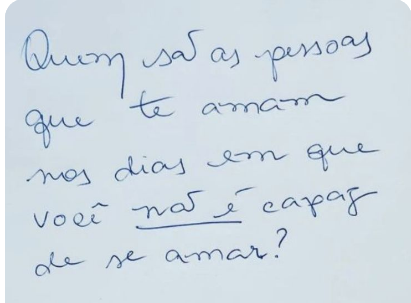 Quem são as pessoas
que te amam
nos dias em que
você não é capaz
de se amar?